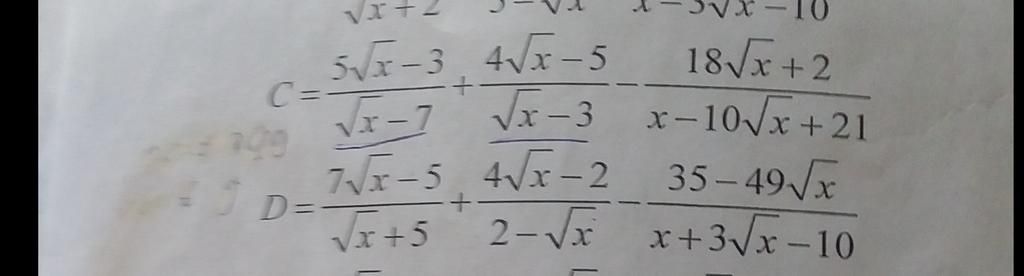 √x+2 5−√x x−3√x−10
C = (5√x−3)/(√x−7) + (4√x−5)/(√x−3) − (18√x+2)/(x−10√x+21)
D = (7√x−5)/(√x+5) + (4√x−2)/(2−√x) − (35−49√x)/(x+3√x−10)